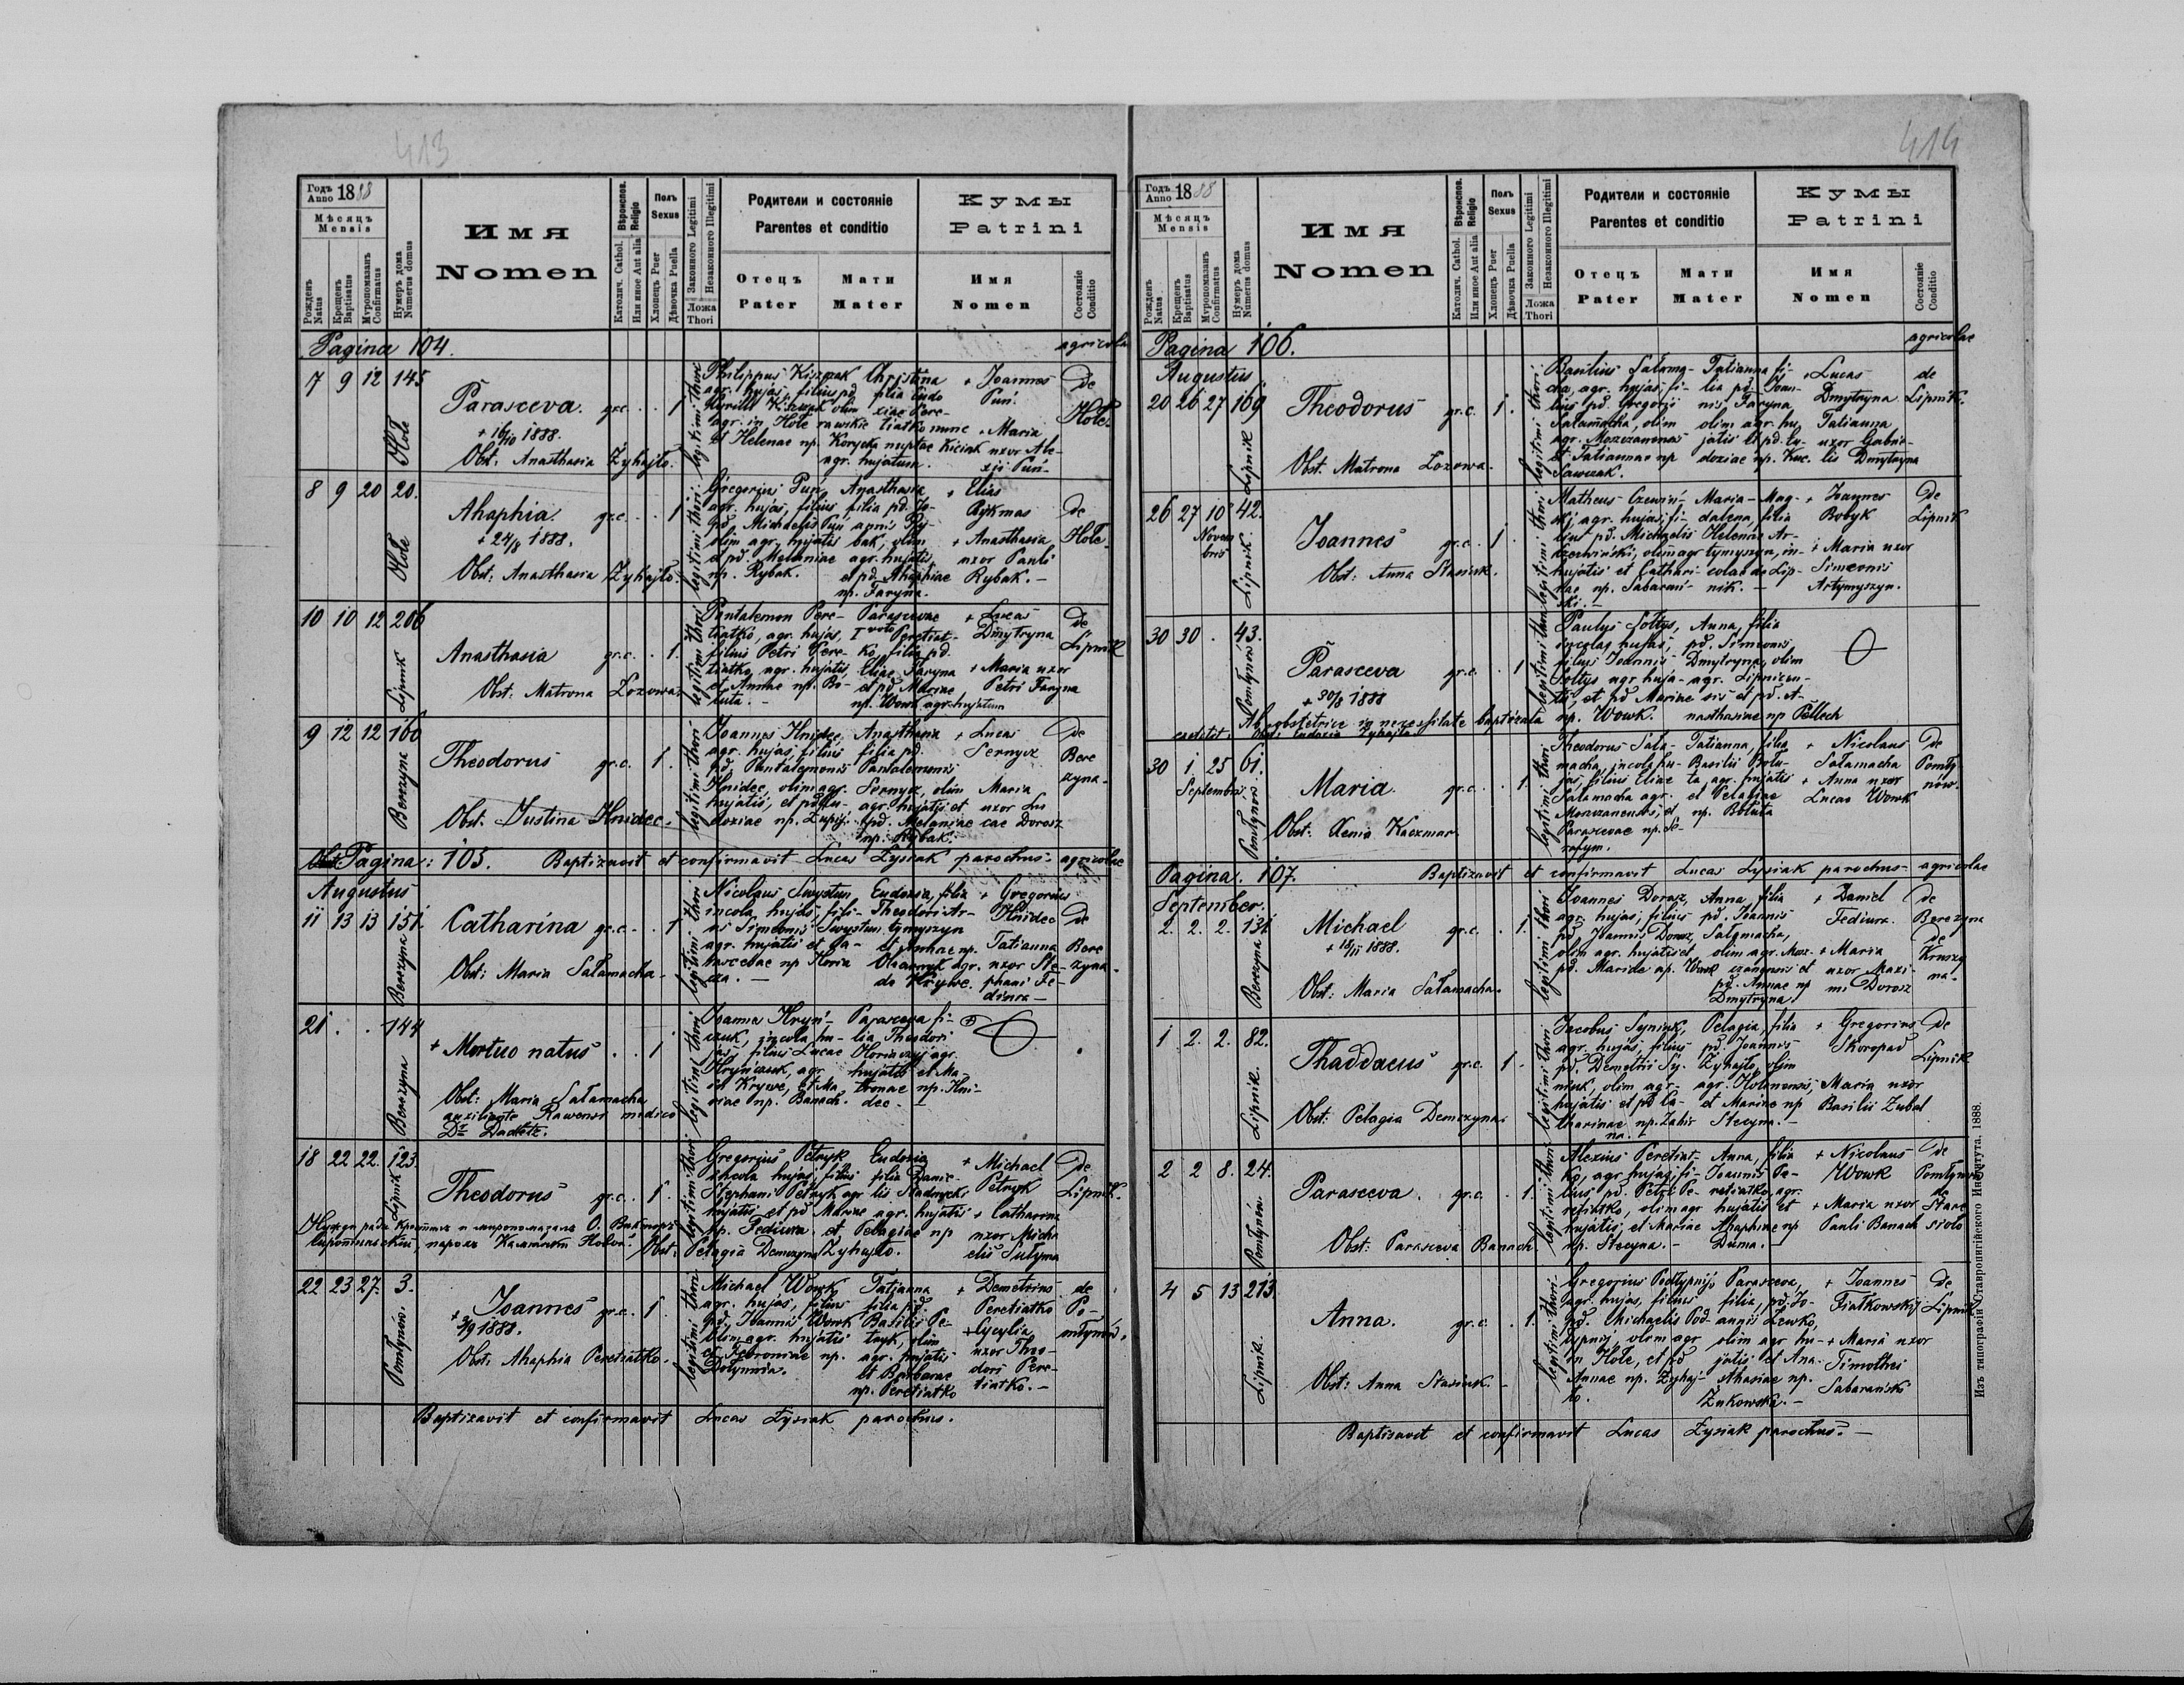 413
Годъ Anno 1888
Мѣсяцъ Mensis
Рожденъ Natus
Крещенъ Baptisatus
Муропомазанъ Confirmatus
Нумеръ дома Numerus domus
Имя
Nomen
Вѣроиспов. Religio
Католич. Cathol.
Или иное Aut alia
Полъ Sexus
Хлопецъ Puer
Дѣвочка Puella
Законного Legitimi
Незаконного Illegitimi
Ложа Thori
Родители и состояніе
Parentes et conditio
Отецъ Pater
Мати Mater
Кумы
Patrini
Имя Nomen
Состояніе Conditio
Pagina 104. agricola
7 9 12 145
Hole
Parasceva. gr.c. . . 1
+ 16/10 1888.
Obst: Anasthasia Zyhajło.
legitimi thori
Philippus Kiszczak
agr. hujas, filius pd.
Christina
filia
+ Joannes
Puń.
+ Maria
uxor Ale-
xii Puń-
De
Hole
8 9 20 20.
Hole
Ahaphia. gr.c. . . 1
+ 24/8 1888.
Obst: Anasthasia Zyhajło.
legitimi thori
Gregorius Puń,
agr. hujas, filius
pd. Michaelis Puń
olim agr. hujatis
et pd. Melaniae
np. Rybak.
Anasthasia
filia pd. Jo-
annis Ry-
bak, olim
agr. hujatis
et pd. Ahaphiae
np. Faryna.
+ Elias
Rykmas
+ Anasthasia
uxor Pauli
Rybak. -
de
Hole
10 10 12 206
Lipnik
Anasthasia gr.c. . 1.
Obst: Matrona Lozowa
legitimi thori
Pantalemon Pere-
tiatko, agr. hujas,
filius Petri Pere-
tiatko, agr. hujatis,
et Annae np. Bo-
łuta. -
Parascevae
I voto Peretiat-
ko, filia pd.
Eliae Faryna
et pd. Mariae
np. Wowk agr. hujatum
+ Lucas
Dmytryna
+ Maria uxor
Petri Faryna
De
Lipnik
9 12 12 160
Berezyna
Theodorus gr.c. 1.
Obst. Justina Hnidec.
legitimi thori
Joannes Hnidec
agr. hujas, filius
pd. Pantalemonis
Hnidec, olim agr.
hujatis, et pd. Eu-
doxiae np. Zupij.
Anasthasia
filia pd.
Pantalemonis
Sernycz, olim
agr. hujatis et
pd. Melaniae
np. Rybak.
+ Lucas
Sernycz
Maria
uxor Lu
cae Dorosz
De
Bere
zyna-
Pagina: 105. Baptizavit et confirmavit Lucas Łysiak parochus. agricolae
Augustus
11 13 13 151
Berezyna
Catharina gr.c. - . 1
Obst: Maria Sałamacha-
legitimi thori
Nicolaus Swystun
incola hujas, fili-
us Simeonis Swystun
agr. hujatis et Pa-
rascevae np Horia
cza. -
Eudoxia, filia
Theodori Ar-
tymyszyn
et Annae np.
agr.
de Krywe.
+ Gregorius
Hnidec
Tatianna
uxor Ste-
phani Fe-
diura-
de
Bere
zyna-
21 . . 144
Berezyna
+ Mortuo natus . . 1
Obst: Maria Sałamacha
auxiliante Rawensi medico
Dr Dadlete.
legitimi thori
Joannes Hryń-
czuk, incola hu-
jas, filius Lucae
Hryńczuk, agr.
in Krywe, et Ma-
riae np. Banach.
Parasceva fi-
lia Theodori
Horiaczyj agr.
hujatis et Ma-
tronae np. Hni-
dec. -
18 22 22. 123.
Lipnik
Theodorus gr.c. . 1.
Obst: Pelagia Demczyna Zyhajło.
legitimi thori
Gregorius Petryk
incola hujas, filius
Stephani Petryk agr
hujatis et pd Mariae
np. Fediura.
Eudoxia
filia Danie-
lis Stadnycki
agr. hujatis
et Pelagiae np
+ Michael
Petryk
+ Catharina
uxor Micha
elis Sulyma
De
Lipnik.
22 23 27. 3.
Pomłynów.
Joannes gr.c. . 1.
+ 3/9 1888.
Obst: Ahaphia Peretiatko.
legitimi thori
Michael Wowk
agr. hujas, filius
pd. Joannis Wowk
olim agr. hujatis
et Febroniae np.
Dołynna.
Tatianna
filia pd.
Basilii Pe-
tryk, olim
agr. hujatis
et Barbarae
np. Peretiatko
+ Demetrius
Peretiatko
+ Cycylia
uxor Theo-
dori Pere-
tiatko. -
de
Po-
młynów.
Baptizavit et confirmavit Lucas Łysiak parochus.
414
Годъ Anno 1888
Мѣсяцъ Mensis
Рожденъ Natus
Крещенъ Baptisatus
Муропомазанъ Confirmatus
Нумеръ дома Numerus domus
Имя
Nomen
Вѣроиспов. Religio
Католич. Cathol.
Или иное Aut alia
Полъ Sexus
Хлопецъ Puer
Дѣвочка Puella
Законного Legitimi
Незаконного Illegitimi
Ложа Thori
Родители и состояніе
Parentes et conditio
Отецъ Pater
Мати Mater
Кумы
Patrini
Имя Nomen
Состояніе Conditio
Pagina 106. agricolae
Augustus
20 26 27 169
Lipnik
Theodorus gr.c. 1.
Obst. Matrona Lozowa.
legitimi thori
Basilius Sałama-
cha, agr. hujas, fi-
lius pd. Gregorii
Sałamacha, olim
agr. Moszczanensis
et Tatiannae np
Sawczak.
Tatianna fi-
lia pd. Joan-
nis Faryna
olim agr. hu-
jatis et pd. Eu-
doxiae np. Kuc.
+ Lucas
Dmytryna
Tatianna
uxor Gabrie-
lis Dmytryna
de
Lipnik.
26 27 10 Novembris 42.
Lipnik.
Joannes gr.c. 1
Obst: Anna Stasiuk.
legitimi thori
Matheus Czewiń-
skj agr. hujas, fi-
lius pd. Michaelis
Czerwiński, olim agr
hujatis et Cathari-
nae np. Sabarań-
ski. -
Maria-Mag-
dalena, filia
Helenae Ar-
tymyszyn, in-
colae de Lip-
nik. -
+ Joannes
Bobyk
+ Maria uxor
Simeonis
Artymyszyn.
De
Lipnik
30 30 . 43.
Pomłynów
Parasceva gr.c. . 1
+ 30/8 1888
Ab obstetrice in necessitate baptizata
Obst: Eudoxia Zyhajło
legitimi thori
Paulus Sołtys,
incolas hujas,
filius Joannis
Sołtys agr huja-
tis, et pd Mariae
np. Wowk.
Anna, filia
pd. Simeonis
Dmytryna, olim
agr. Lipnicen-
sis et pd. A-
nasthasiae np Pellech
30 1 Septembris 25 61.
Pomłynów
Maria. gr.c. . . 1.
Obst: Xenia Kaczmar
legitimi thori
Theodorus Sała-
macha, incola hu-
jas, filius Eliae
Sałamacha agr.
Moszczanensis, et
Parascevae np. Se-
rafym.
Tatianna, filia
Basilii Bołu-
ta, agr. hujatis
et Pelagiae
np. Bołuta
+ Nicolaus
Sałamacha
+ Anna uxor
Lucae Wowk
De
Pomły
nów.
Pagina. 107. Baptizavit et confirmavit Lucas Łysiak parochus- agricolae
September.
2. 2. 2. 131
Berezyna
Michael gr.c. . 1.
+ 18/11 1888.
Obst: Maria Sałamacha.
legitimi thori
Joannes Dorosz,
agr. hujas, filius
pd. Joannis Dorosz,
olim agr. hujatis et
pd. Mariae np. Wowk
Anna, filia
pd. Joannis
Sałamacha,
olim agr. Mosz-
czanensis et
pd. Annae np
Dmytryna.
+ Daniel
Fediura.
+ Maria
uxor Maxi-
mi Dorosz
de
Berezyna
de
Kruszy
na-
1 2. 2. 82.
Lipnik.
Thaddaeus gr.c. 1.
Obst: Pelagia Demczyna.
legitimi thori
Jacobus Syniuk,
agr. hujas, filius
pd. Demetrii Sy-
niuk, olim agr-
hujatis et pd Ca-
tharinae np. Zahir
na.
Pelagia, filia
pd. Joannis
Zyhajło, olim
agr. Holinensis
et Mariae np
Stecyna. -
+ Gregorius
Skoropad
Maria uxor
Basilii Zubal
De
Lipnik
2 2 8. 24.
Pomłynów
Parasceva. gr.c. . 1.
Obst: Parasceva Banach.
legitimi thori
Alexius Peretiat-
ko, agr. hujas, fi-
lius pd. Petri Pe-
retiatko, olim agr
hujatis, et Mariae
np. Stecyna. -
Anna, filia
Joannis Pe-
retiatko, agr.
hujatis et
Ahaphiae np
Duma. -
+ Nicolaus
Wowk
+ Maria uxor
Pauli Banach
De
Pomłynów
de
Stare
sioło
4 5 13 213
Lipnik.
Anna. gr.c. . 1.
Obst: Anna Stasiuk. -
legitimi thori.
Gregorius Podłypnij,
agr. hujas, filius
pd. Michaelis Pod-
łypnij, olim agr
in Hole, et pd
Annae np. Zyhaj-
ło.
Parasceva,
filia, pd. Jo-
annis Lewko,
olim agr hu-
jatis et Ana-
sthasiae np.
Żukowska. -
+ Joannes
Fiałkowskij
+ Maria uxor
Timothei
Sabarański
De
Lipnik
Baptisavit et confirmavit Lucas Łysiak parochus. -
Изъ типографіи Ставропигійского Института. 1888.